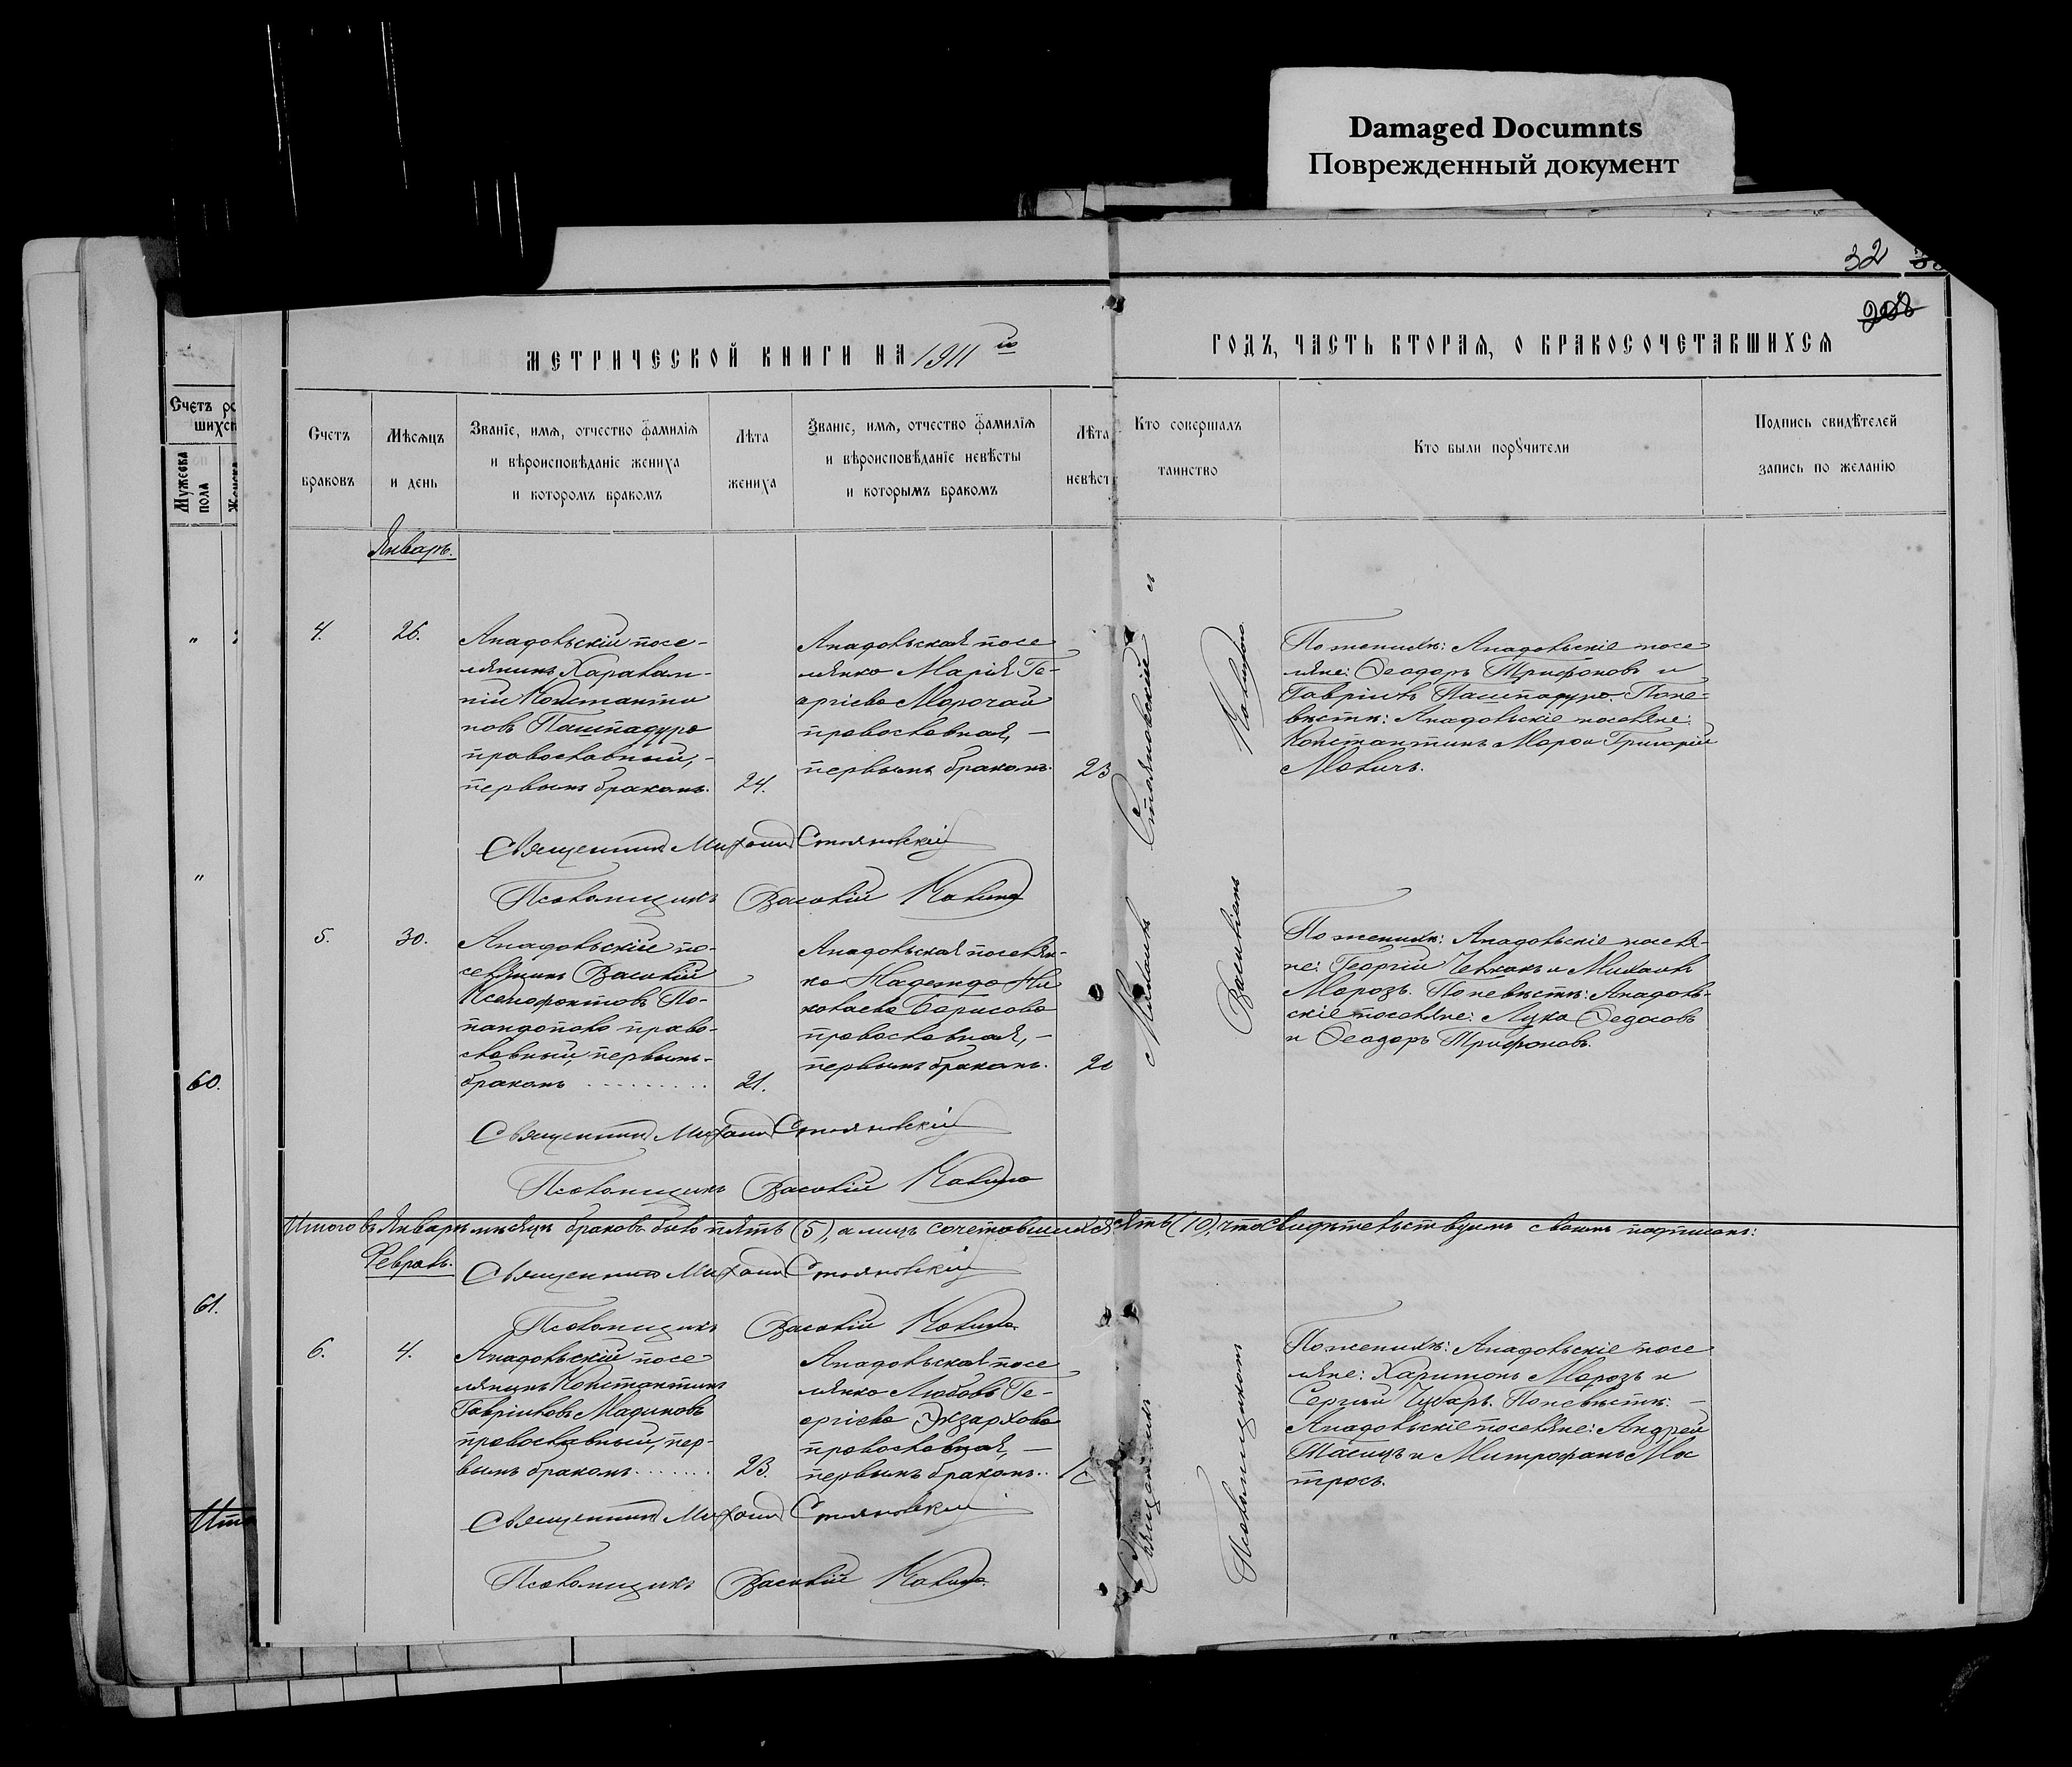 Damaged Documnts
Поврежденный документ
32
208
МЕТРИЧЕСКОЙ КНИГИ НА 1911 го
ГОДЪ, ЧАСТЬ ВТОРАЯ, О БРАКОСОЧЕТАВШИХСЯ
Счетъ
шихся
Мужеска пола
Счетъ браковъ
Мѣсяцъ и день
Званіе, имя, отчество фамилія
и вѣроисповѣданіе жениха
и которомъ бракомъ
Лѣта жениха
Званіе, имя, отчество фамилія
и вѣроисповѣданіе невѣсты
и которымъ бракомъ
Лѣта
невѣст
Кто совершалъ
таинство
Кто были поручители
Подпись свидѣтелей
запись по желанію
Январь.
4.
26.
Анадольскій посе-
лянинъ Харалам-
пій Константи
новъ Пашпадуро
православный, -
первымъ бракомъ.
24.
Анадольская посе
лянка Марія Ге-
оргіева Морочай
православная, —
первымъ бракомъ.
23
По женихѣ: Анадольскіе посе
ляне: Ѳеодоръ Трифоновъ и
Гавріилъ Пашпадуро. По не-
вѣстѣ: Анадольскіе поселяне:
Константинъ Моро и Григорій
Священникъ Михаилъ Стояновскій
Псаломщикъ Василій Калина
5.
30.
Анадольскій по-
селянинъ Василій
Ксенофонтовъ По-
пандопало право-
славный, первымъ-
бракомъ
21.
Анадольская поселян-
ка Надежда Ни
колаева Борисова
православная, —
первымъ бракомъ.
20
По женихѣ: Анадольскіе поселя-
не: Георгій Челжакъ и Михаилъ
Морозъ. По невѣстѣ: Анадоль-
скіе поселяне: Лука Ѳедасовъ
и Ѳеодоръ Трифоновъ.
Священникъ Михаилъ Стояновскій
Псаломщикъ Василій Калина
Итого въ Январѣ мѣсяцѣ браковъ было пять (5), а лицъ сочетавшихся (10), что свидѣтельствуемъ своимъ подписомъ:
Февраль.
Священникъ Михаилъ Стояновскій
Псаломщикъ Василій Калина.
6.
4.
Анадольскій посе-
лянинъ Константинъ
Гавріиловъ Мадиновъ
православный, пер-
вымъ бракомъ
23.
Анадольская посе
лянка Любовь Ге-
оргіева Экзархова
православная, —
первымъ бракомъ..
По женихѣ: Анадольскіе посе
ляне: Харитонъ Морозъ и
Сергій Чубарь. По невѣстѣ: —
Анадольскіе поселяне: Андрей
Таецъ и Митрофанъ Мас
тросъ.
Священникъ Михаилъ Стояновскій
Псаломщикъ Василій Калина.
Священникъ Михаилъ Стояновскій и
Псаломщикомъ Василіемъ Калиною.
60.
61.